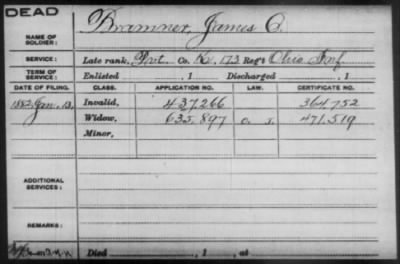 DEAD
NAME OF SOLDIER: Bramner, James O.
SERVICE: Late rank, Pvt. Co. K, 173 Reg't Ohio Inf
TERM OF SERVICE: Enlisted , 1 Discharged , 1
DATE OF FILING. CLASS. APPLICATION NO. LAW. CERTIFICATE NO.
1882, Jan. 13, Invalid, 437.266 364,752
Widow, 635,897 471.519
Minor,
ADDITIONAL SERVICES:
REMARKS:
Died , 1 , at